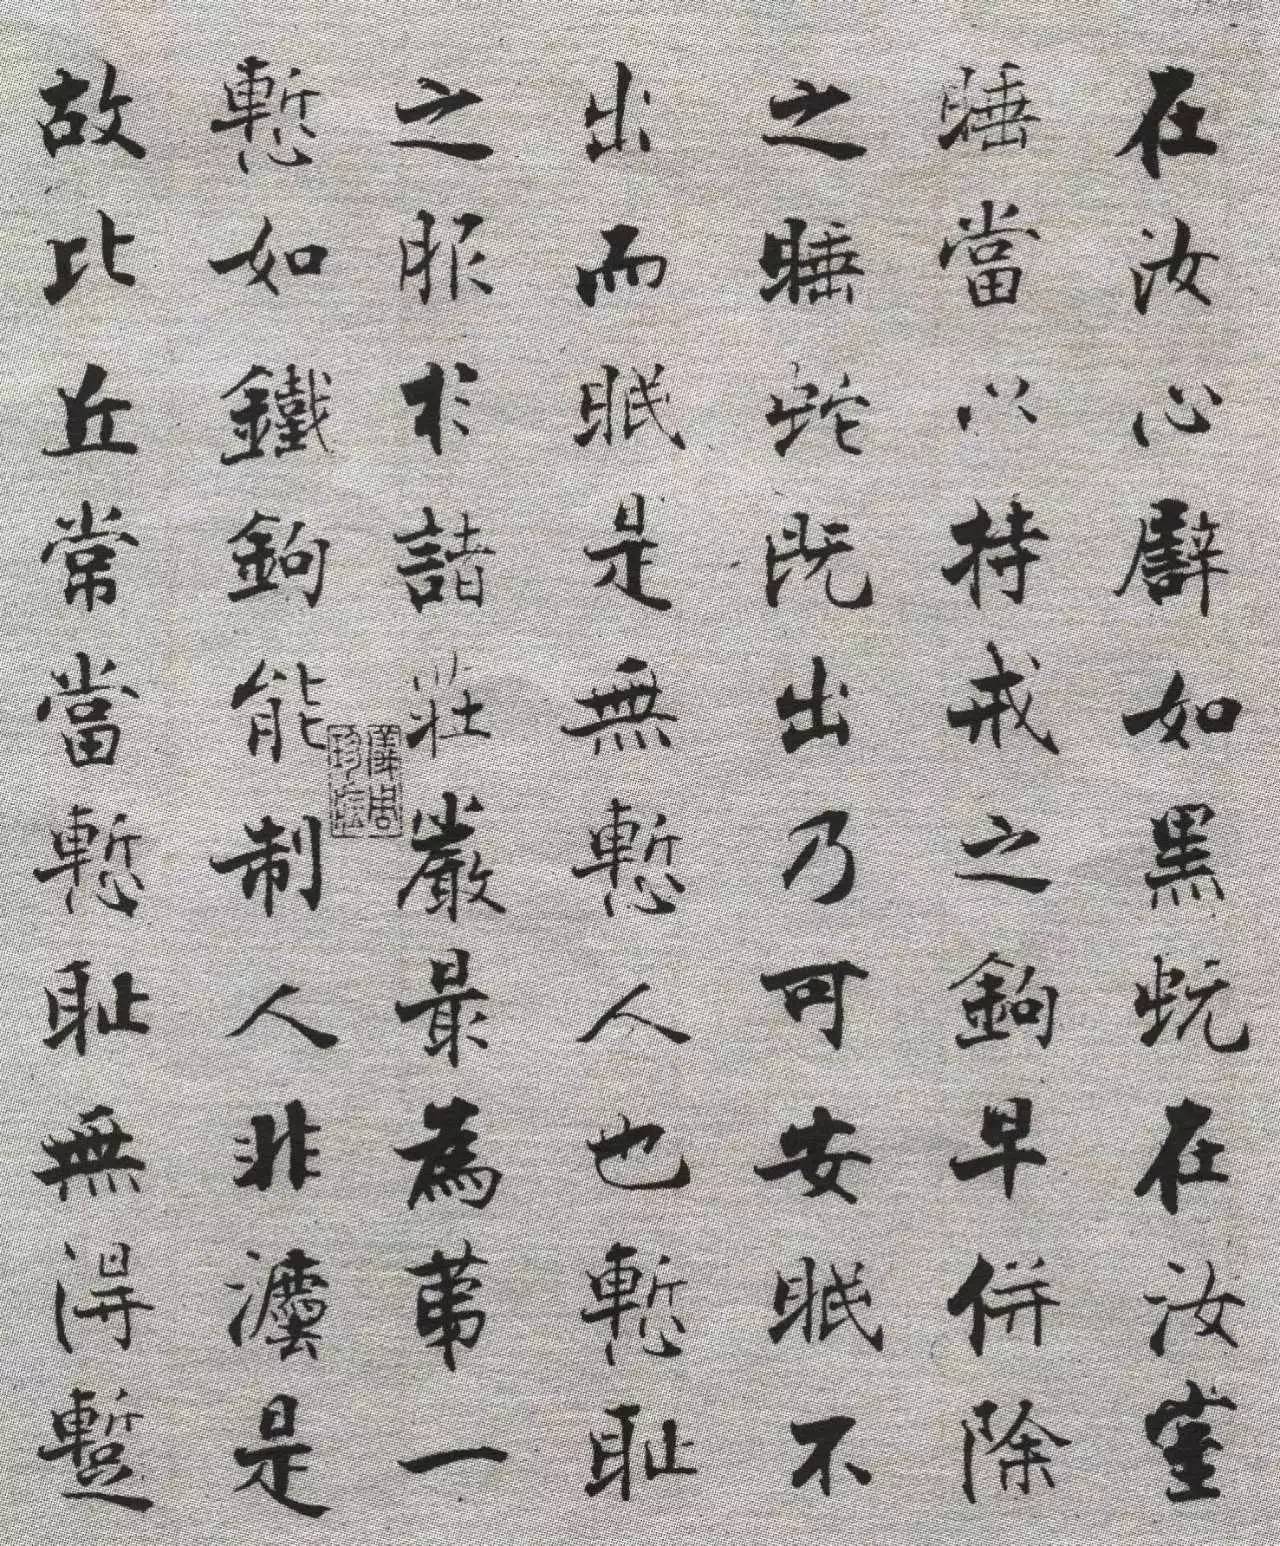 在汝心譬如黑蚖在汝室
睡當以持戒之鉤早併除
之睡蛇既出乃可安眠不
出而眠是無慙人也慙恥
之服於諸莊嚴最為第一
慙如鐵鉤能制人非灋是
故比丘常當慙恥無得蹔